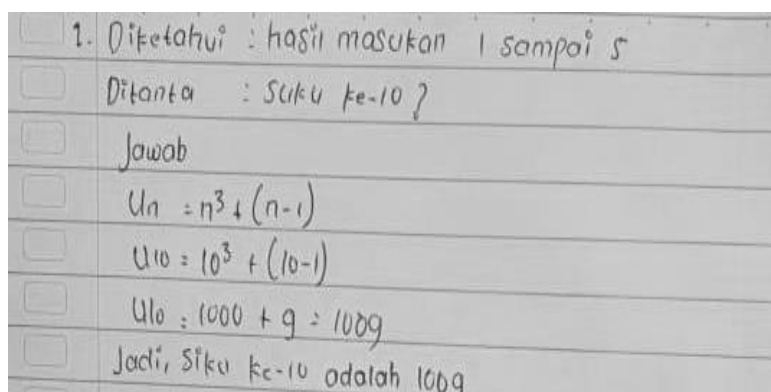 1. Diketahui : hasil masukan 1 sampai 5
Ditanta : Suku ke-10 ?
Jawab
Un = n³ + (n-1)
U10 = 10³ + (10-1)
U10 = 1000 + 9 = 1009
Jadi, Siku ke-10 adalah 1009